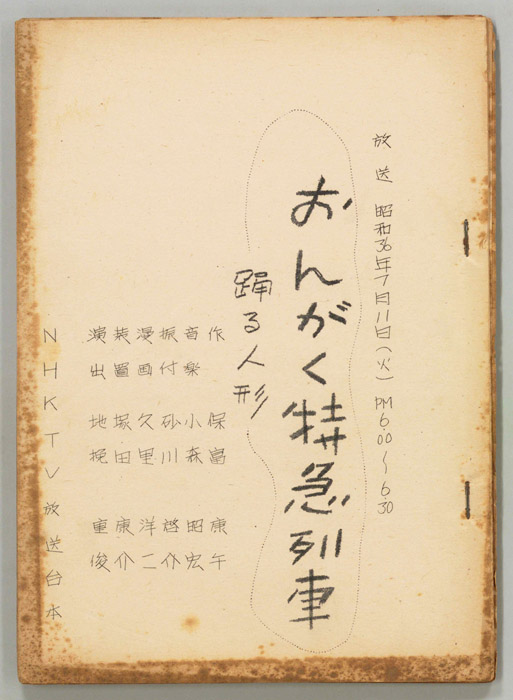 放送 昭和36年7月11日(火) PM 6.00～6.30
おんがく特急列車
踊る人形
作 保富 康午
音楽 小森 昭宏
振付 砂川 啓介
漫画 久里 洋二
装置 塚田 康介
演出 地挽 重俊
NHKTV放送台本